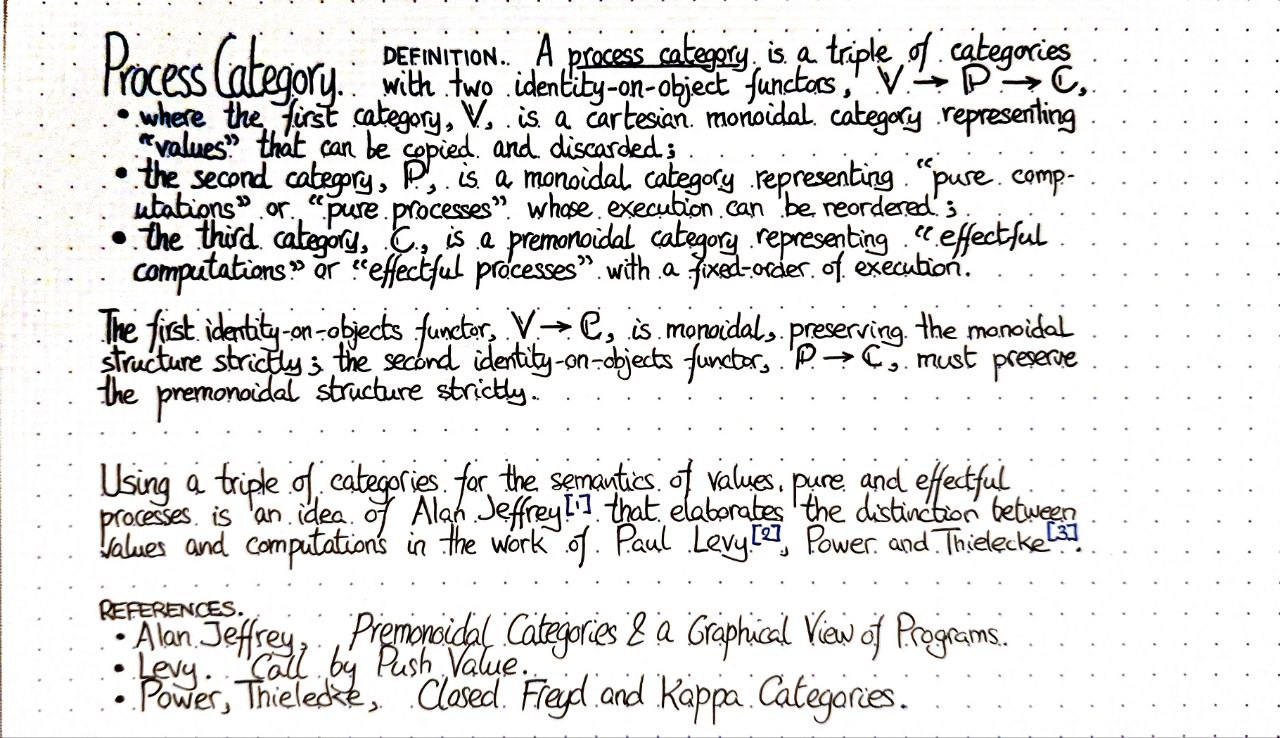 Process Category. DEFINITION. A process category is a triple of categories
with two identity-on-object functors, V → P → C,
• where the first category, V, is a cartesian monoidal category representing
"values" that can be copied and discarded;
• the second category, P, is a monoidal category representing "pure comp-
utations" or "pure processes" whose execution can be reordered;
• the third category, C, is a premonoidal category representing "effectful
computations" or "effectful processes" with a fixed-order of execution.
The first identity-on-objects functor, V → C, is monoidal, preserving the monoidal
structure strictly; the second identity-on-objects functor, P → C, must preserve
the premonoidal structure strictly.
Using a triple of categories for the semantics of values, pure and effectful
processes is an idea of Alan Jeffrey[1] that elaborates the distinction between
values and computations in the work of Paul Levy[2], Power and Thielecke[3].
REFERENCES.
• Alan Jeffrey, Premonoidal Categories & a Graphical View of Programs.
• Levy. Call by Push Value.
• Power, Thielecke, Closed Freyd and Kappa Categories.